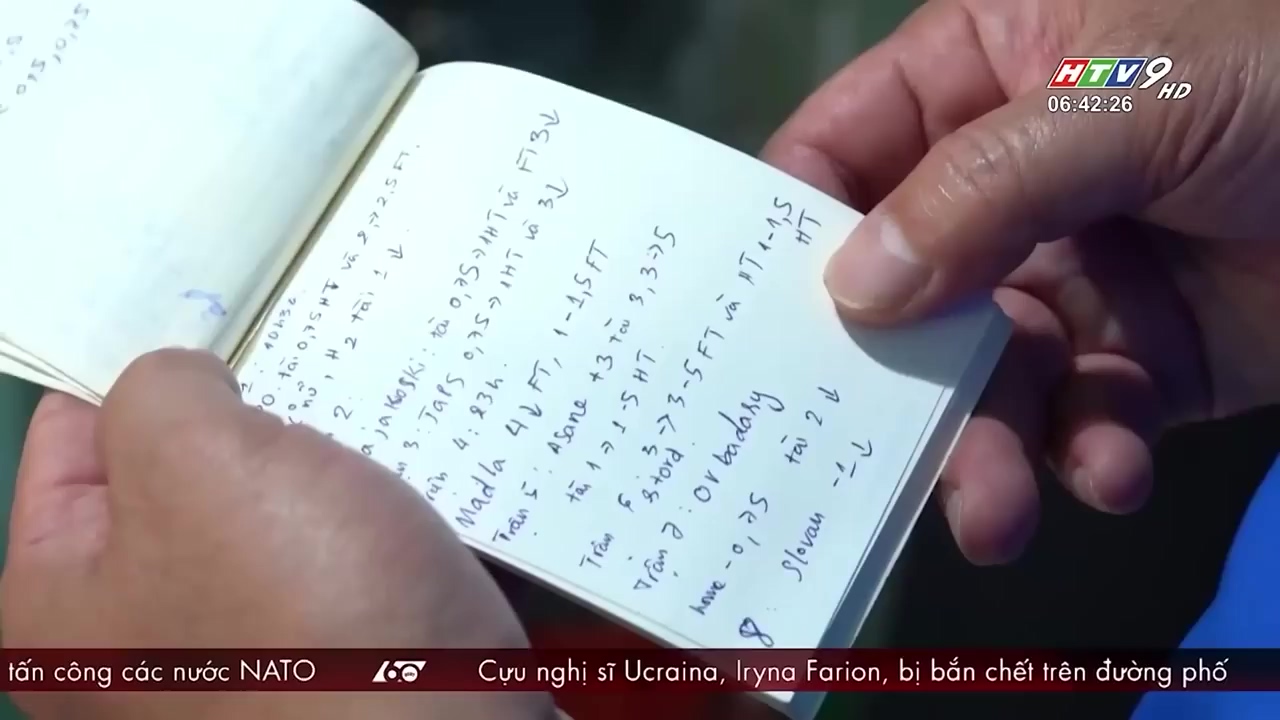 HTV9 HD
06:42:26
0,75, 0,75
: 10h30
tài 0,75 HT và 2,→ 2,5 FT.
2 : , H 2 tài 1 ↓
jakoski : tài 0,75 → 1HT và FT 3↓
3 : JAPS 0,75 → 1HT và 3↓
4 : 23h.
Madla 4↓ FT, 1-1,5 FT
Trận 5 : Asane +3 tài 3, 3→5
tài 1 → 1-5 HT.
Trận 6 3 → 3-5 FT và HT 1-1,5 HT
Stord.
Trận 7 : Orbadasy
home - 0,75 tài 2 ↓
8 : Slovan -1↓
tấn công các nước NATO 60 giây Cựu nghị sĩ Ucraina, Iryna Farion, bị bắn chết trên đường phố